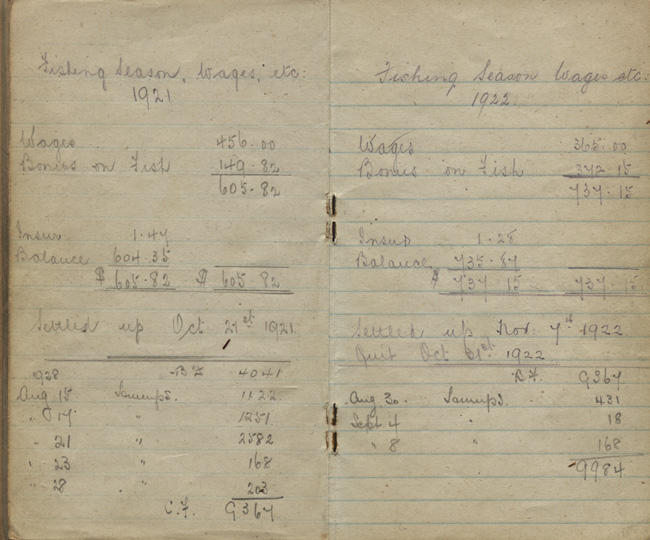 Fishing Season, Wages, etc:
1921
Wages 456.00
Bonus on Fish 149.82
605.82
Insur 1.47
Balance 604.35
$ 605.82 $ 605.82
Settled up Oct 21st 1921
1928 B.F. 4041
Aug 15 1122
" 17 " 1251
" 21 " 2582
" 23 " 168
" 28 " 203
C.F. 9367
Fishing Season Wages etc:
1922
Wages 365.00
Bonus on Fish 372.15
737.15
Insur 1.28
Balance 735.87
$ 737.15 737.15
Settled up Nov. 7th 1922
Quit Oct 31st 1922
B.F. 9367
Aug 30. 431
Sept 4 18
" 8 " 168
9984